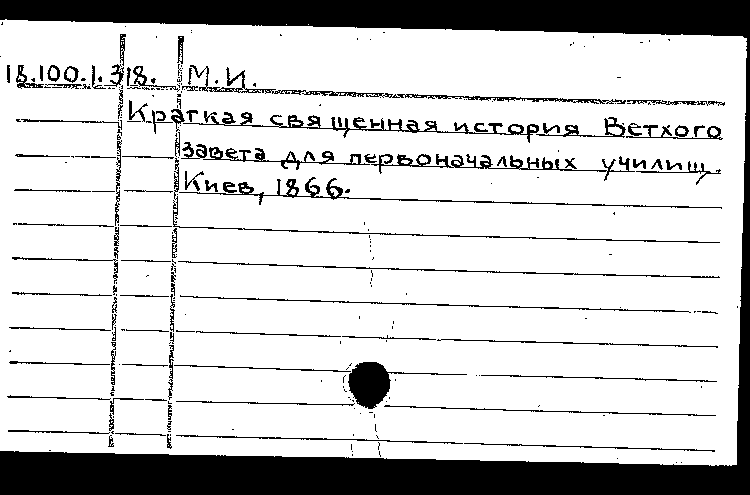 18.100.1.318. М.И.
Краткая священная история Ветхого
завета для первоначальных училищ.
Киев, 1866.